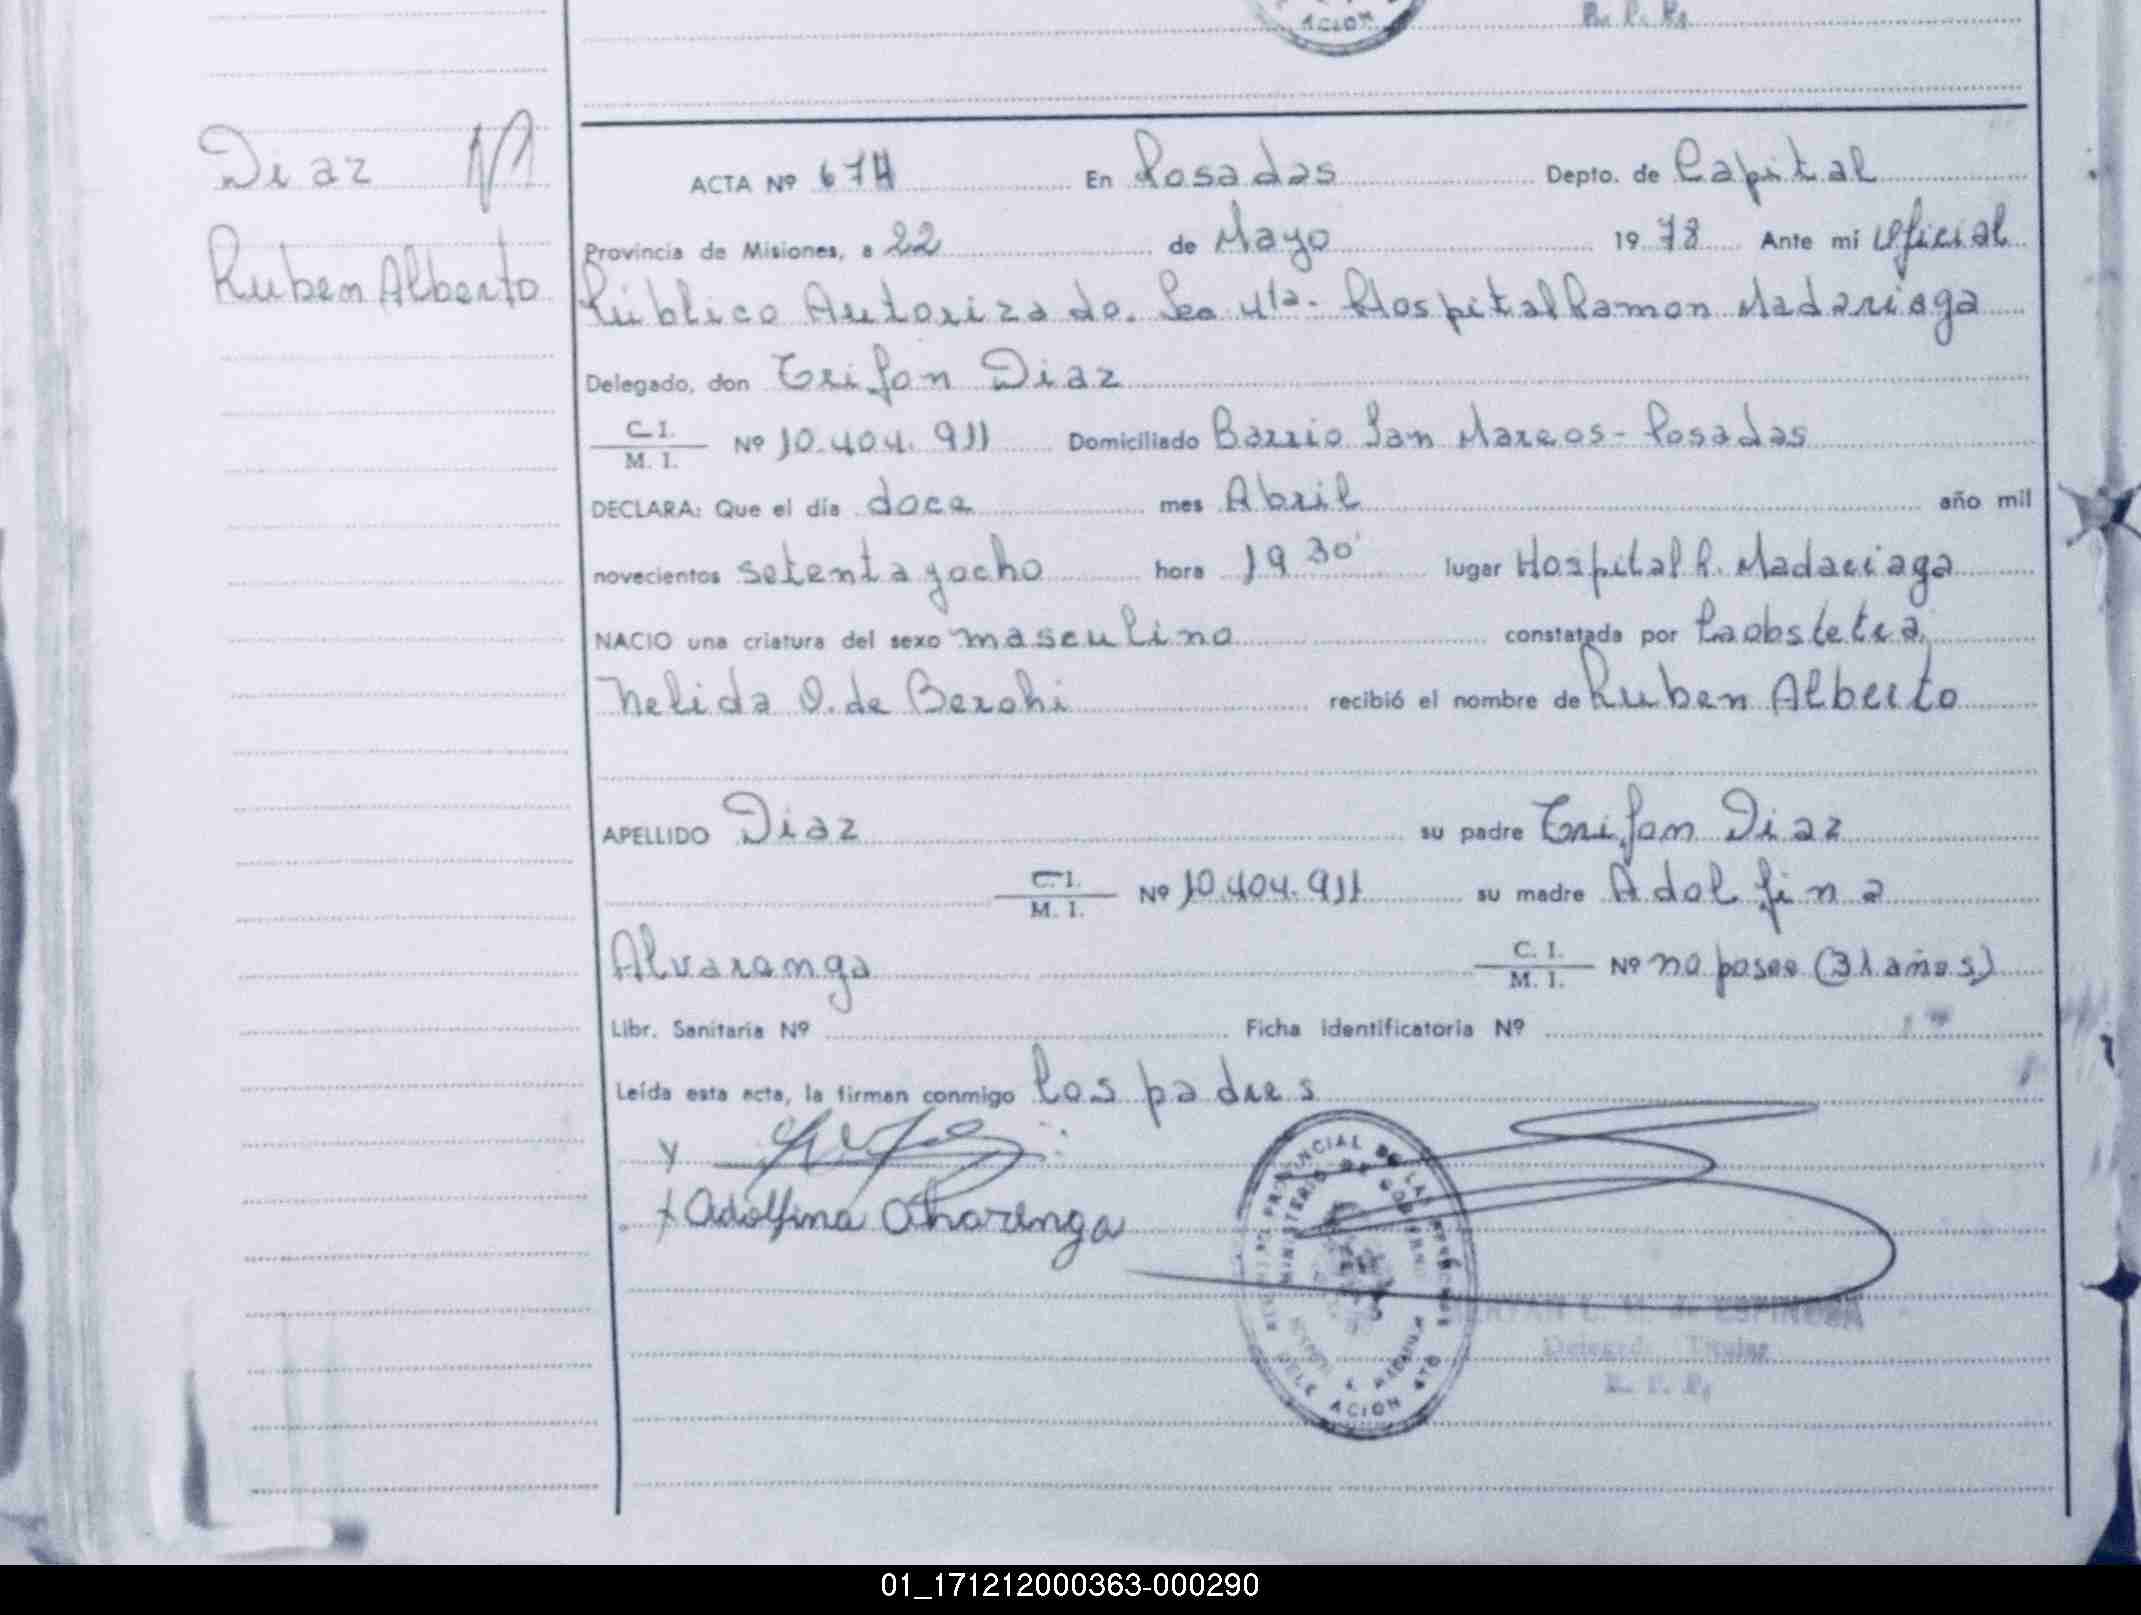 ACION
Diaz
Ruben Alberto
ACTA Nº 674 En Posadas Depto. de Capital
Provincia de Misiones, a 22 de Mayo 1978 Ante mí Oficial
Público Autorizado. Sec 4ta. Hospital Ramon Madariaga
Delegado, don Trifon Diaz
C.I.
M. I. Nº 10.404.911 Domiciliado Barrio San Marcos - Posadas
DECLARA: Que el día doce mes Abril año mil
novecientos setenta y ocho hora 19 30' lugar Hospital R. Madariaga
NACIO una criatura del sexo masculino constatada por La obstetra
Nelida O. de Berchi recibió el nombre de Ruben Alberto
APELLIDO Diaz su padre Trifon Diaz
C.I.
M. I. Nº 10.404.911 su madre Adolfina
Alvarenga C. I.
M. I. Nº no posee (31 años)
Libr. Sanitaria Nº Ficha identificatoria Nº
Leída esta acta, la firman conmigo los padres
y
x Adolfina Alvarenga
PROVINCIAL DE LAS
MINISTERIO DE GOBIERNO
ESPINOSA
Delegado Titular
ACION 4TO
01_171212000363-000290